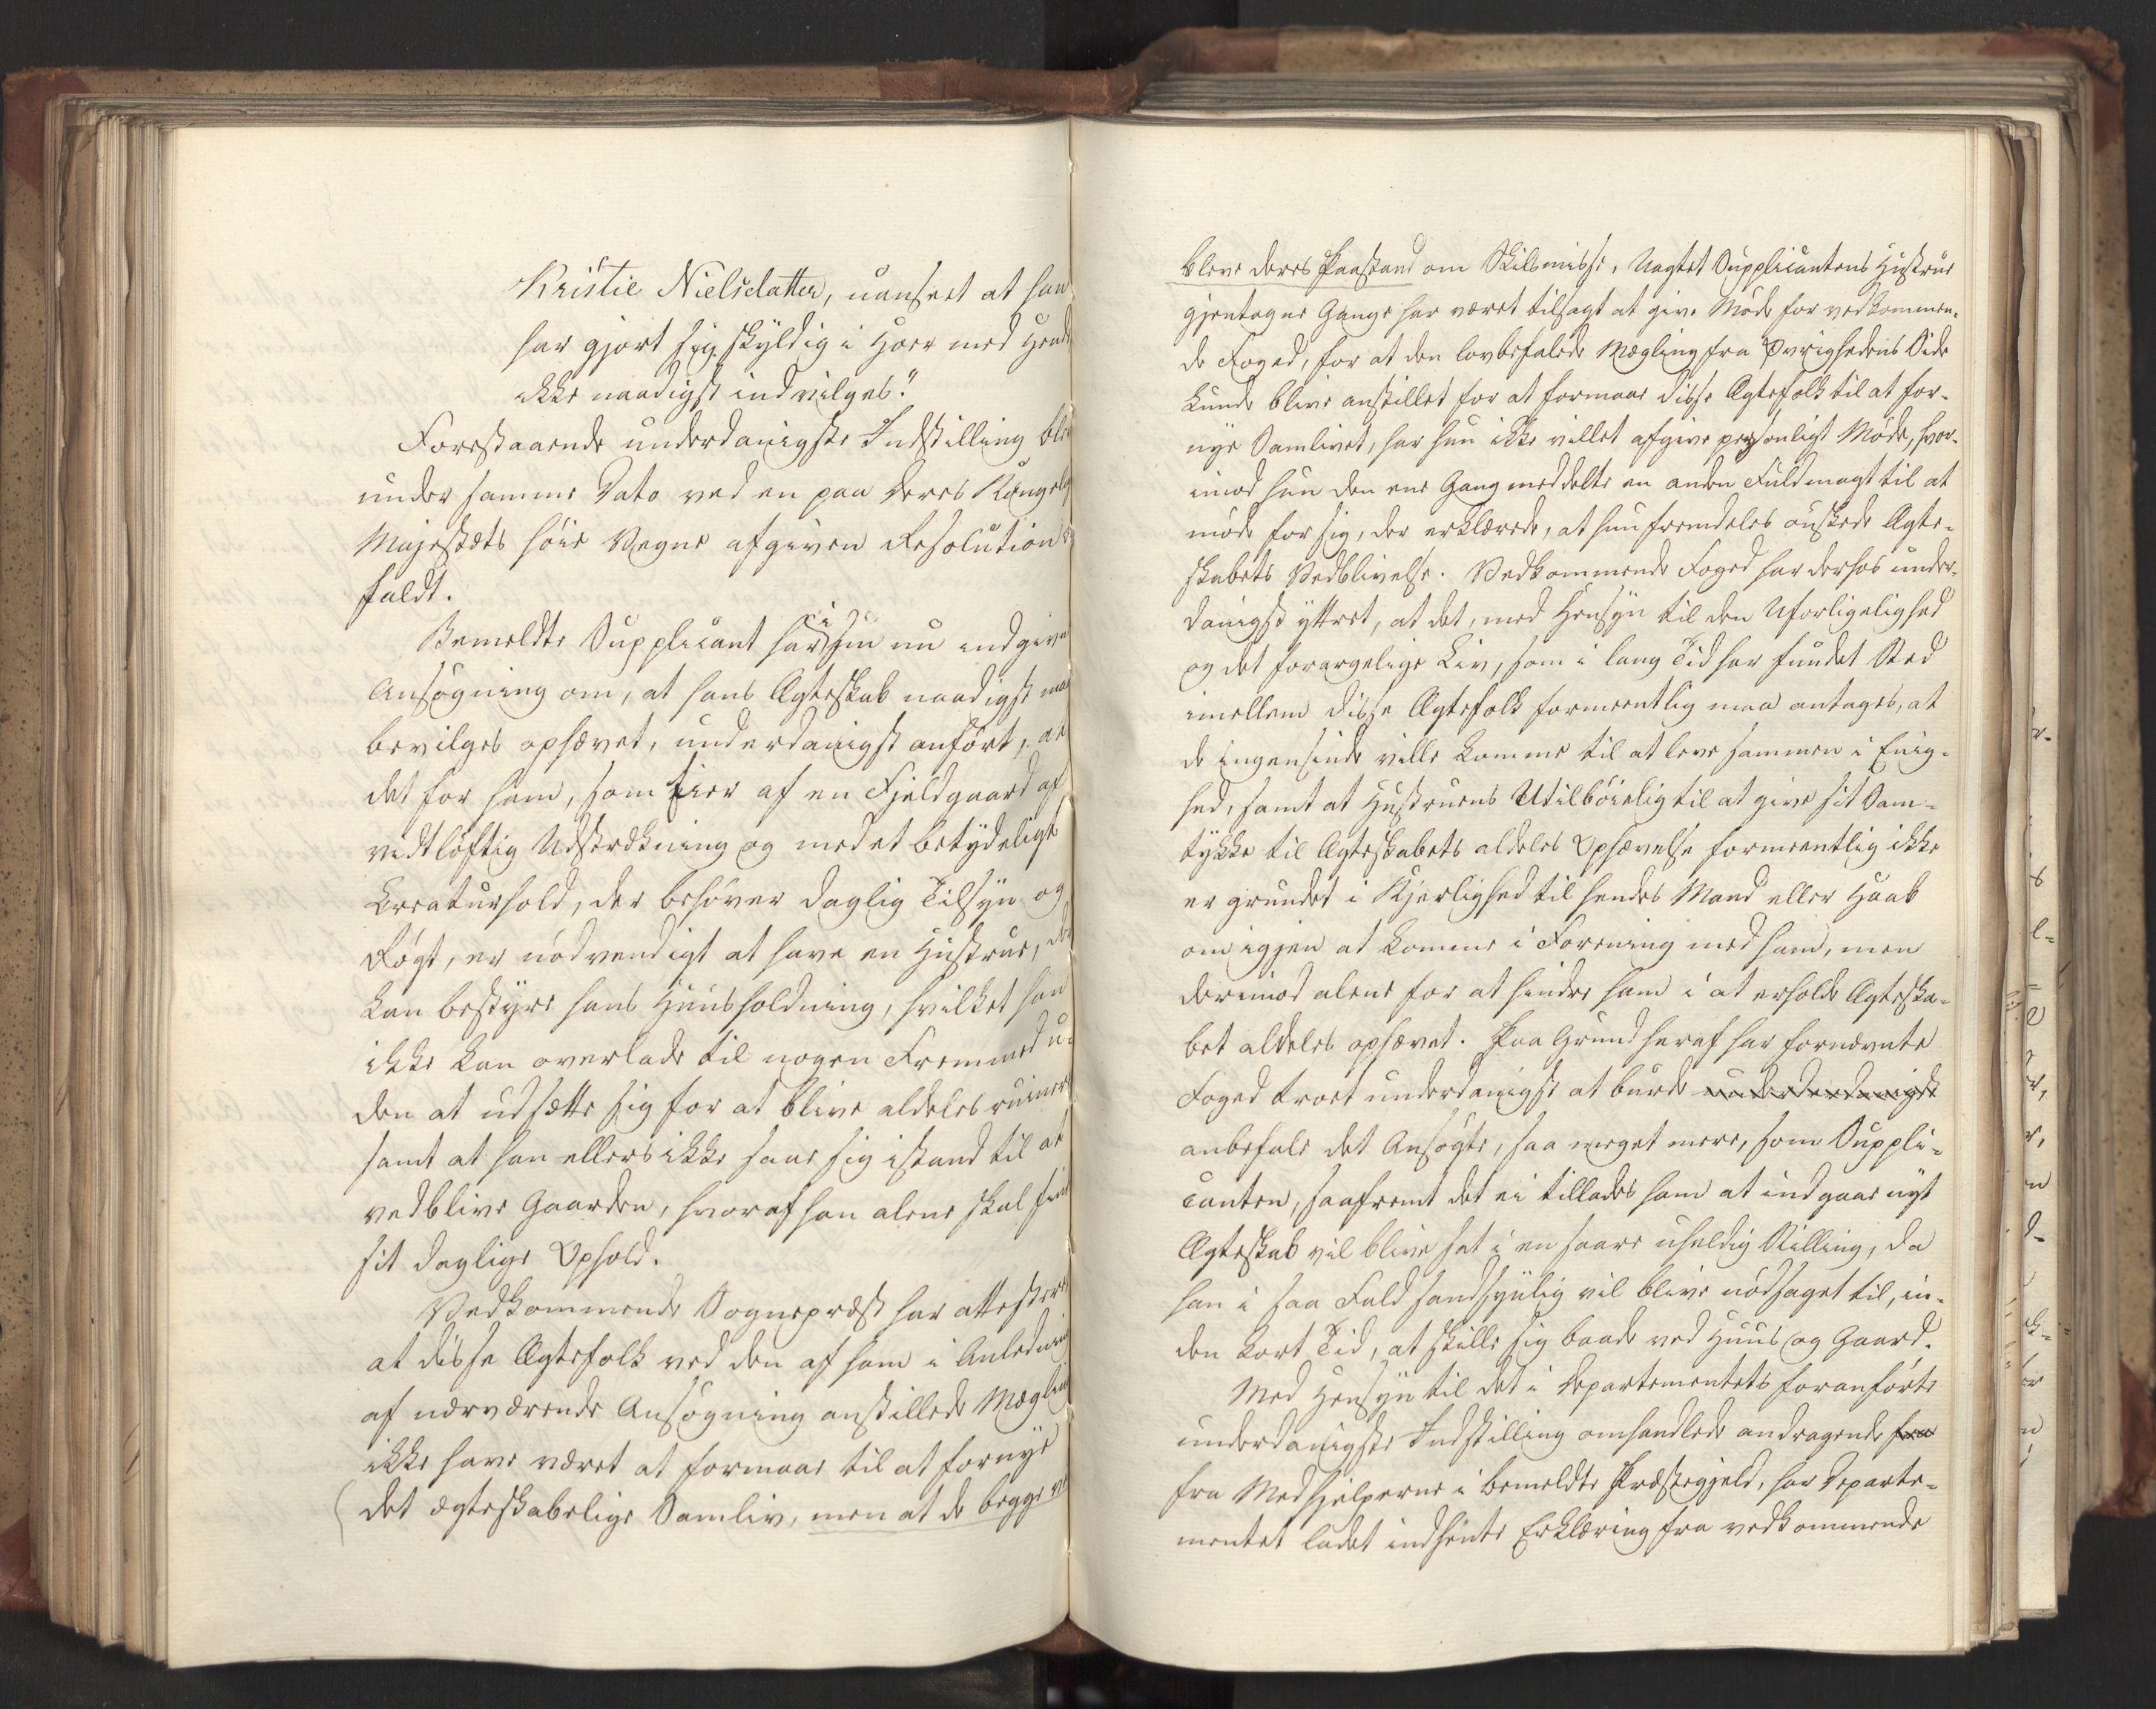 Kristie Nielsdatter, uanseet at han
har gjort sig skyldig i Hoer med Hende
ikke naadigst indvilges."
Forestaaende underdanigste Indstilling blev
under samme Dato ved en paa Deres Kongelig
Majestæts høie Vegne afgiven Resolution
faldt.
Bemeldte Supplicant har i sin nu indgivne
Ansøgning om, at hans Ægteskab naadigst maa
bevilges ophævet, underdanigst anført, at
det for ham, som Eier af en Fjeldgaard af
vidtløftig Udstrækning og med et betydeligt
Creaturhold, der behøver daglig Tilsyn og
Røgt, er nødvendigt at have en Hustrue, der
kan bestyre hans Huusholdning, hvilket han
ikke kan overlade til nogen Fremmed u-
den at udsætte sig for at blive aldeles ruineret
samt at han ellers ikke saae sig istand til at
vedblive Gaarden, hvoraf han alene skal finde
sit daglige Ophold.
Vedkommende Sognepræst har attesteret
at disse Ægtefolk ved den af ham i Anledning
af nærværende Ansøgning anstillede Mægling
ikke have været at formaae til at fornye
det ægteskabelige Samliv, men at de begge ved
bleve deres Paastand om Skilsmisse, Uagtet Supplicantens Hustrue
gjentagne Gange har været tilsagt at give Møde for vedkommen-
de Foged, for at den lovbefalede Mægling fra Øvrighedens Side
kunde blive anstillet for at formaae disse Ægtefolk til at for-
nye Samlivet, har hun ikke villet afgive personligt Møde, hvor-
imod hun den ene Gang meddelte en anden Fuldmagt til at
møde for sig, der erklærede, at hun fremdeles ønskede Ægte-
skabets Vedblivelse. Vedkommende Foged har derhos under-
danigst yttret, at det, med Hensyn til den Uforligelighed
og det forargelige Liv, som i lang Tid har fundet Sted
imellem disse Ægtefolk formeentlig maa antages, at
de ingensinde ville komme til at leve sammen i Enig-
hed, samt at Hustruens Utilbøielig til at give sit Sam-
tykke til Ægteskabets aldeles Ophævelse formeentlig ikke
er grundet i Kjerlighed til hendes Mand eller Haab
om igjen at komme i Forening med ham, men
derimod alene for at hindre ham i at erholde Ægteska-
bet aldeles ophævet. Paa Grund heraf har fornævnte
Foged troet underdanigst at burde underdanigst
anbefale det Ansøgte, saa meget mere, som Suppli-
canten, saafremt det ei tillades ham at indgaae nyt
Ægteskab vil blive sat i en saare uheldig Stilling, da
han i saa Fald sandsynlig vil blive nødsaget til, in-
den kort Tid, at skille sig baade ved Huus og Gaard.
Med Hensyn til det i Departementets foranførte
underdanigste Indstilling omhandlede andragende fra
fra Medhjelperne i bemeldte Præstegjeld, har Departe-
mentet ladet indhente Erklæring fra vedkommende